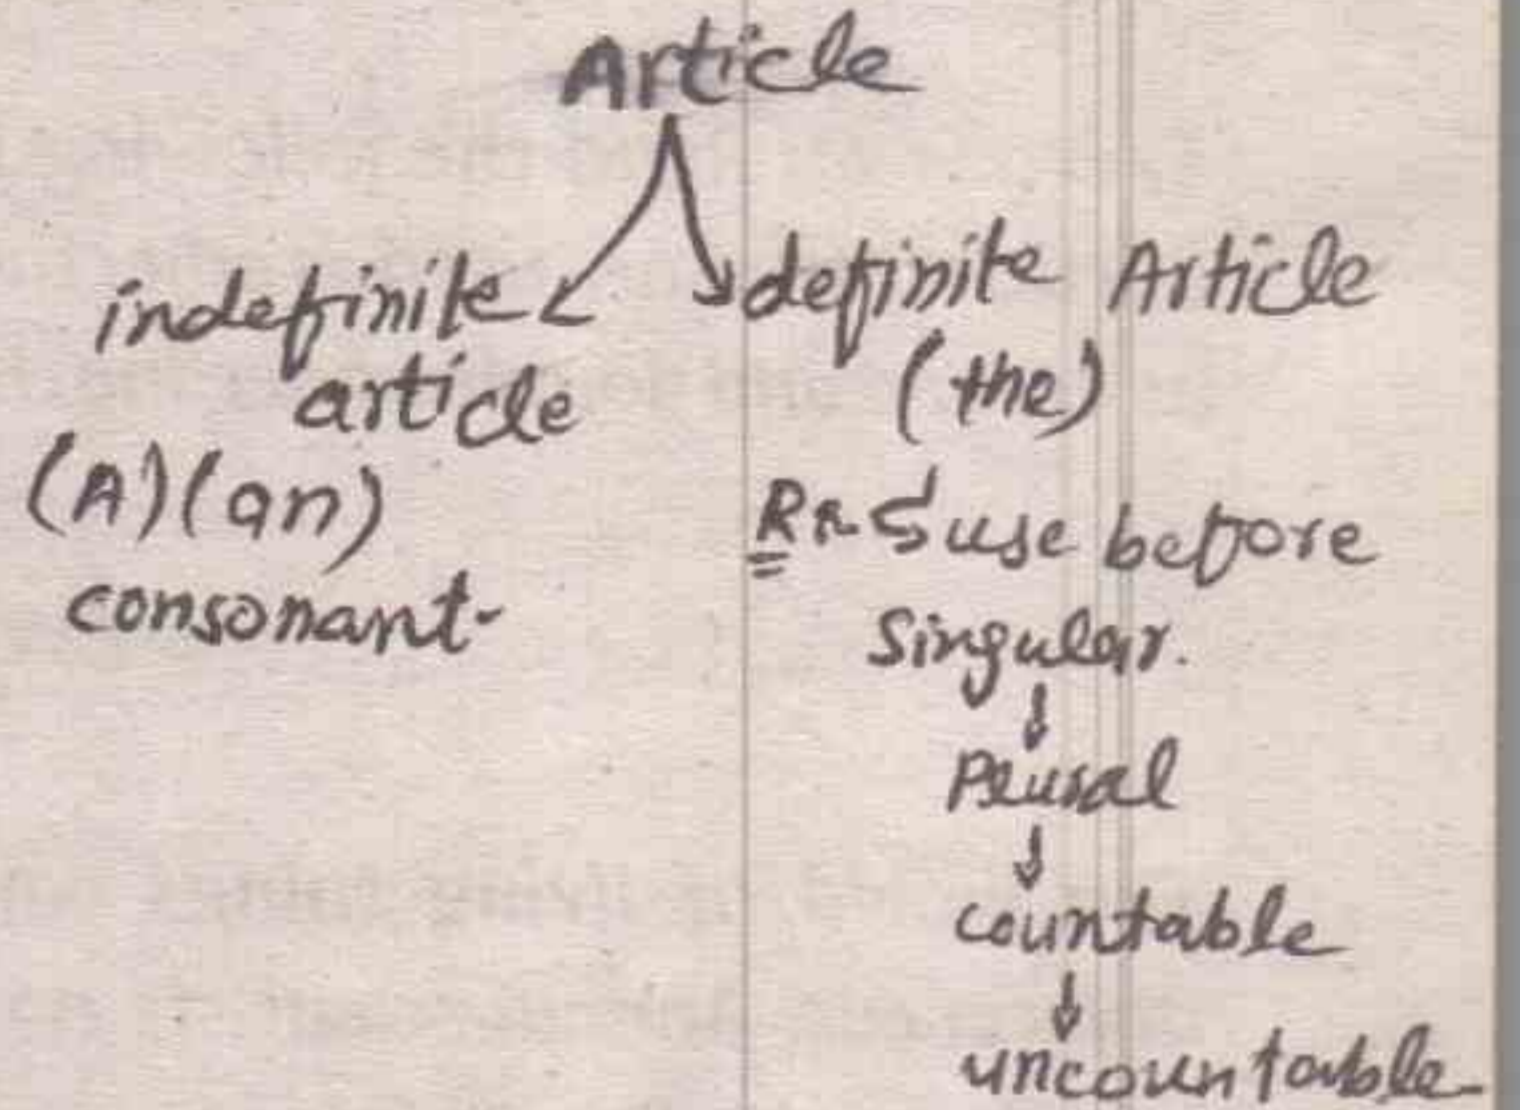 Article
indefinite
article
(A) (an)
consonant-
definite Article
(the)
use before
Singular.
Plural
countable
uncountable